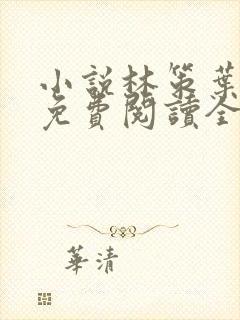 小說林策葉
免費閱讀全
華清